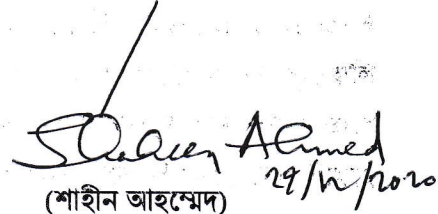 Shaheen Ahmed
29/12/2020
(শাহীন আহম্মেদ)